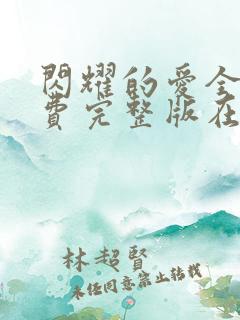 閃耀的愛全
費完整版在
林超賢
未经同意禁止转载